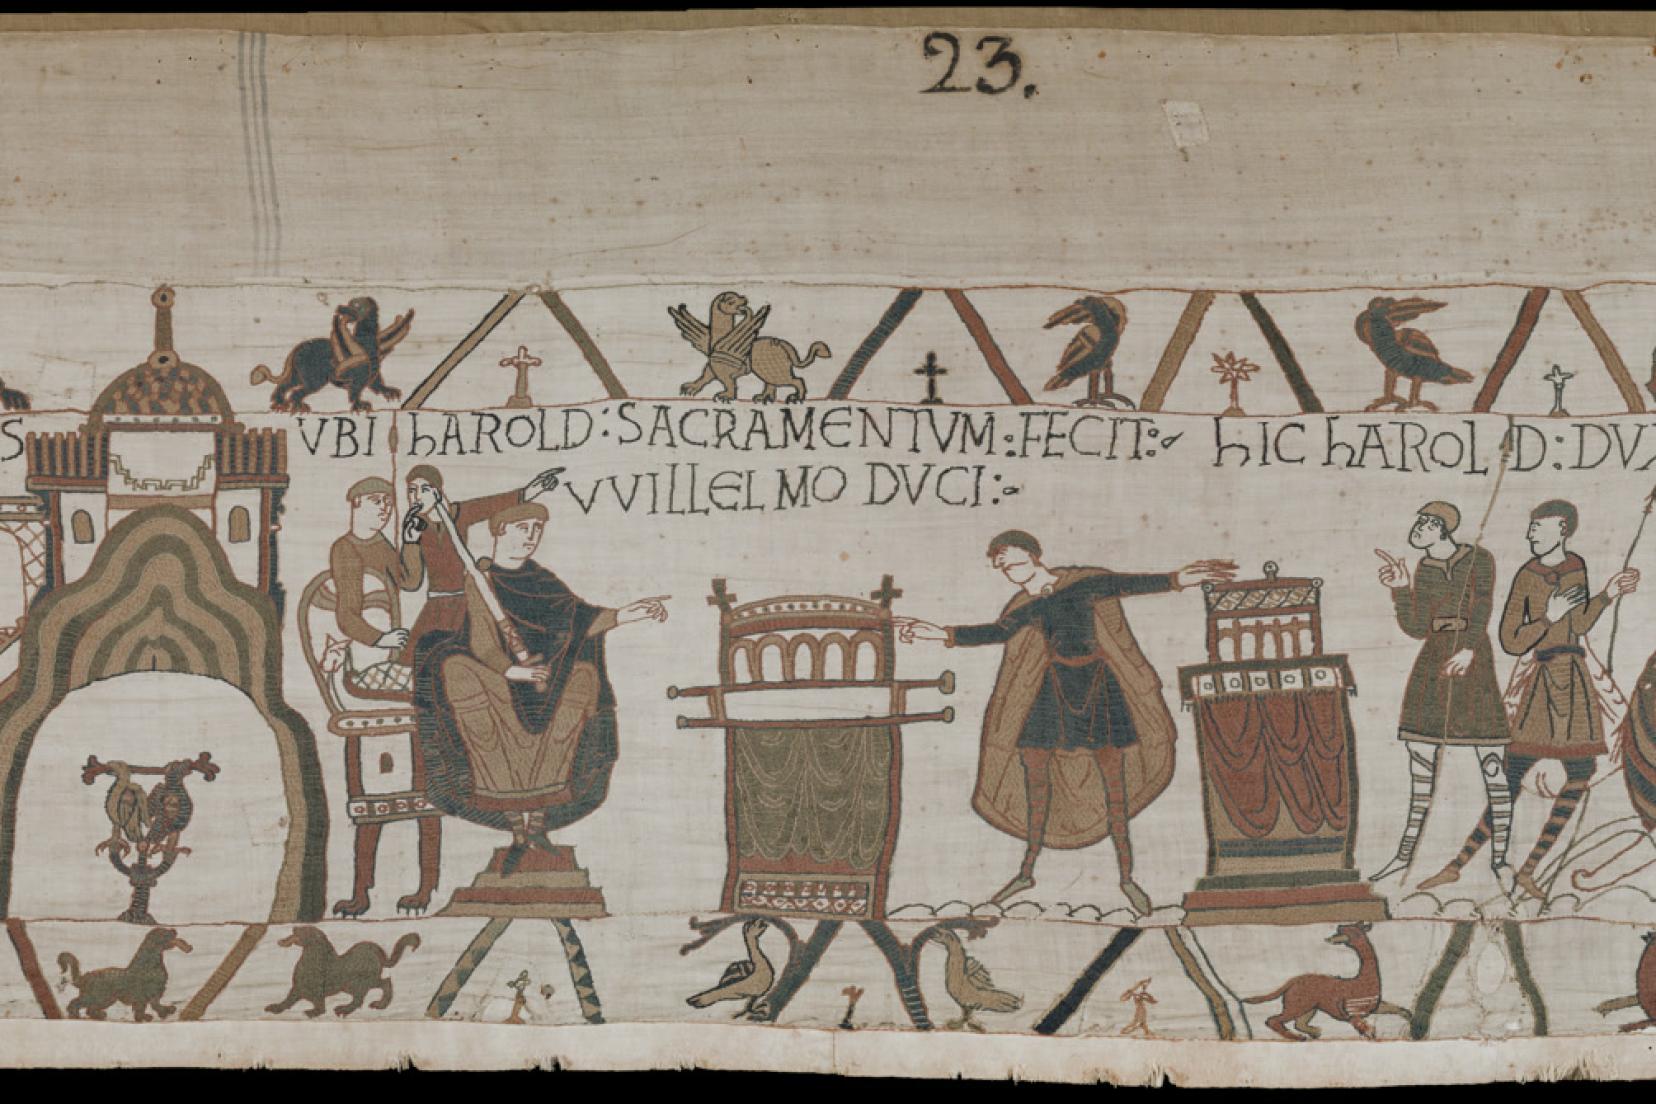 23.
S VBI hAROLD : SACRAMENTVM : FECIT : hIC hAROLD : DVX
VVILLELMO DVCI :